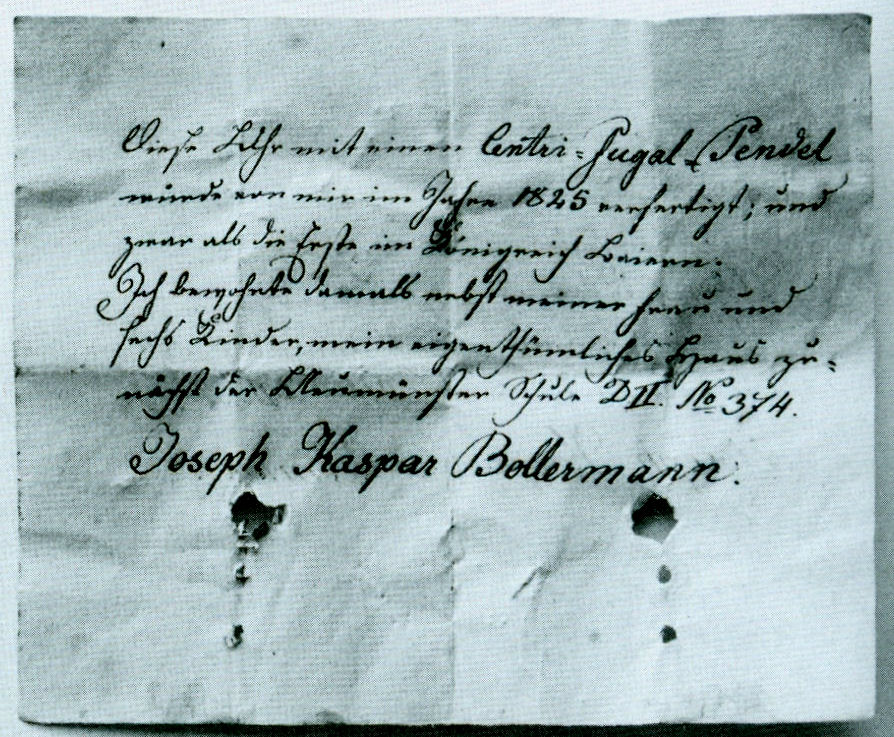 Diese Uhr mit einen Centri-Fugal-Pendel
wurde von mir im Jahre 1825 verfertigt; und
zwar als die Erste im Königreich Baiern.
Ich bewohnte damals nebst meiner Frau und
sechs Kinder, mein eigenthümliches Haus zu-
nächst der Neumünster Schule D II. No 374.
Joseph Kaspar Bollermann.